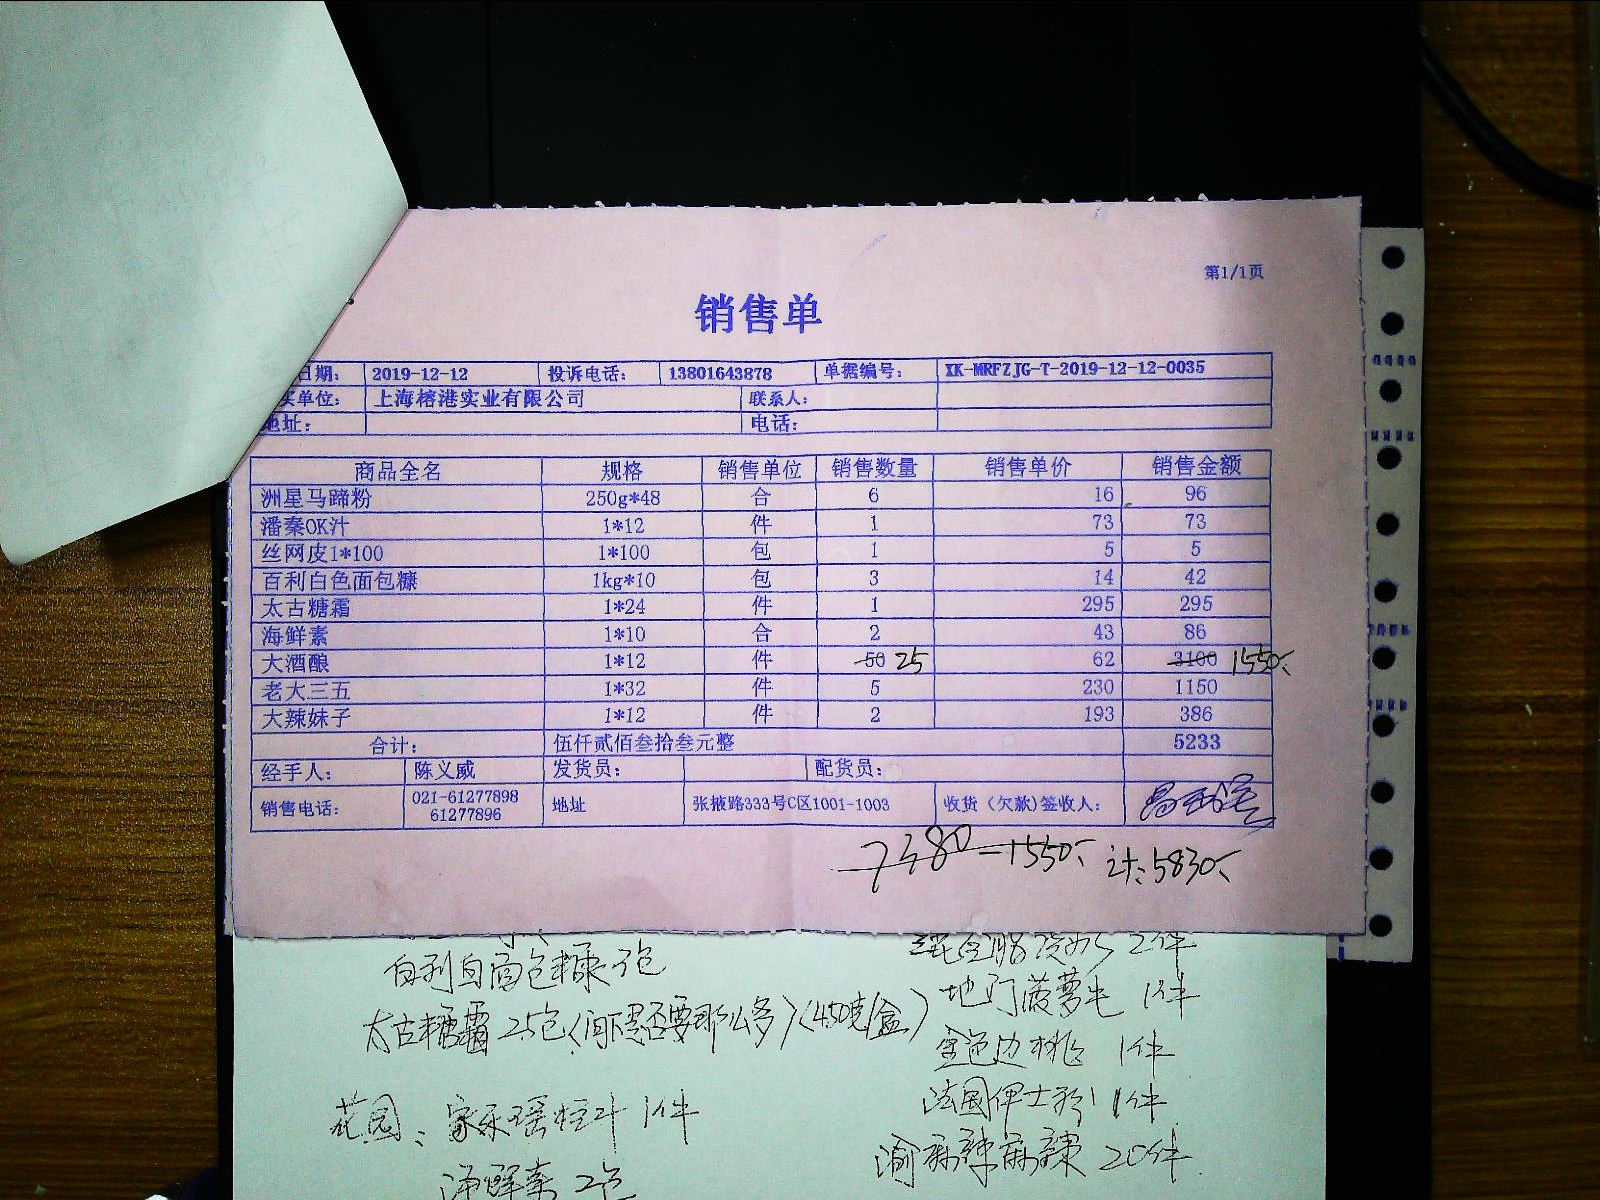 第1/1页
销售单
日期: 2019-12-12 投诉电话: 13801643878 单据编号: XK-MRFZJG-T-2019-12-12-0035
买单位: 上海榕港实业有限公司 联系人:
地址: 电话:
商品全名 规格 销售单位 销售数量 销售单价 销售金额
洲星马蹄粉 250g*48 合 6 16 96
潘秦OK汁 1*12 件 1 73 73
丝网皮1*100 1*100 包 1 5 5
百利白色面包糠 1kg*10 包 3 14 42
太古糖霜 1*24 件 1 295 295
海鲜素 1*10 合 2 43 86
大酒酿 1*12 件 50 25 62 3100 1550
老大三五 1*32 件 5 230 1150
大辣妹子 1*12 件 2 193 386
合计: 伍仟贰佰叁拾叁元整 5233
经手人: 陈义威 发货员: 配货员:
销售电话: 021-61277898 61277896 地址 张掖路333号C区1001-1003 收货(欠款)签收人:
7380-1550 计:5830
2件
百利白面包糠 3包
地门菠萝 1件
太古糖霜 25包(问下是否要那么多)(450克/盒)
金色边桃 1件
法国伊士粉 1件
花园: 家乐 1件
渝 麻辣 20件
海鲜素 2包